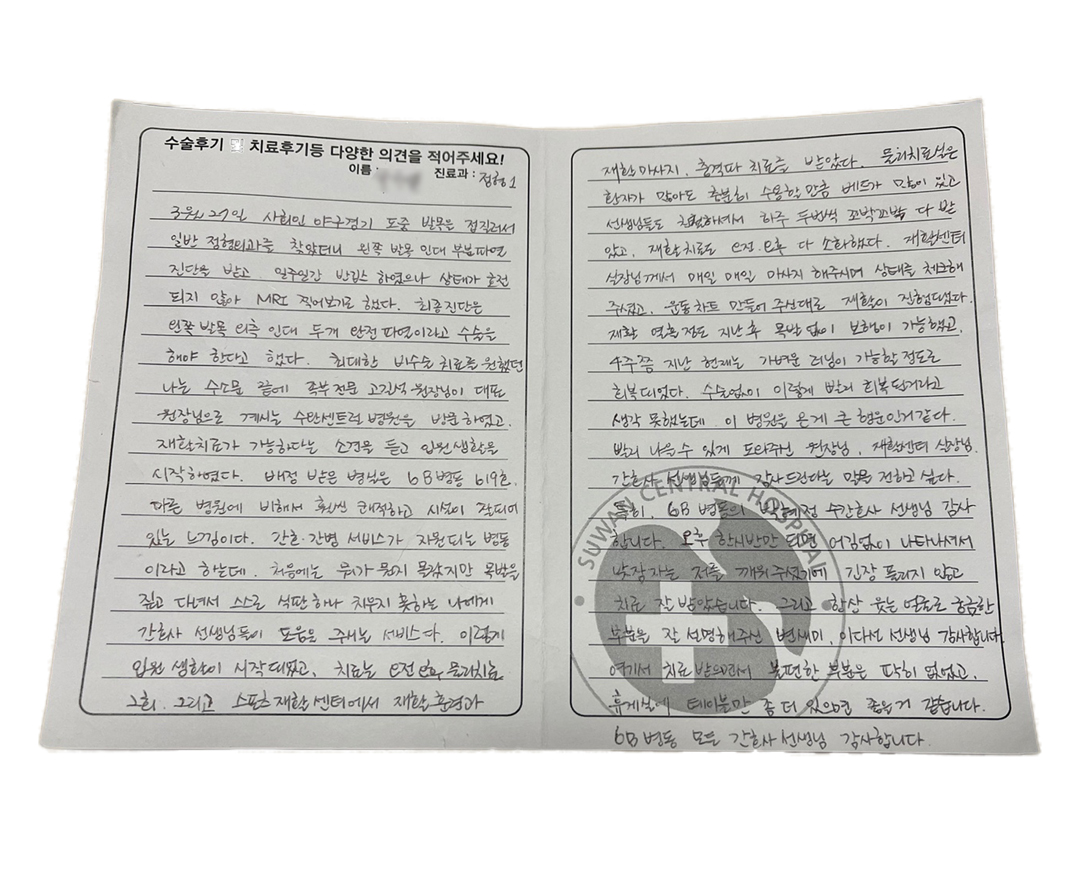 수술후기 및 치료후기등 다양한 의견을 적어주세요!
이름 : 진료과 : 정형1
3월 27일 사회인 야구경기 도중 발목을 접질러서
일반 정형외과를 찾았더니 왼쪽 발목 인대 부분파열
진단을 받고 일주일간 반깁스 하였으나 상태가 호전
되지 않아 MRI 찍어보기로 했다. 최종진단은
왼쪽 발목 외측 인대 두개 완전파열이라고 수술을
해야 한다고 했다. 최대한 비수술 치료를 원했던
나는 수소문 끝에 족부전문 고길석 원장님이 대표
원장님으로 계시는 수완센트럴병원을 방문하였고,
재활치료가 가능하다는 소견을 듣고 입원생활을
시작하였다. 배정 받은 병실은 6B병동 619호.
다른 병원에 비해서 훨씬 쾌적하고 시설이 잘되어
있는 느낌이다. 간호·간병 서비스가 지원되는 병동
이라고 하는데, 처음에는 뭐가 뭔지 몰랐지만 목발을
짚고 다녀서 스스로 식판하나 치우지 못하는 나에게
간호사 선생님들이 도움을 주시는 서비스다. 이렇게
입원 생활이 시작되었고, 치료는 오전 오후 물리치료
2회, 그리고 스포츠재활센터에서 재활운동과
재활마사지, 충격파 치료를 받았다. 물리치료실은
환자가 많아도 충분히 수용할만큼 베드가 많이 있고
선생님들도 친절하셔서 하루 두번씩 꼬박꼬박 다 받
았고, 재활치료도 오전·오후 다 소화했다. 재활센터
실장님께서 매일 매일 마사지 해주시며 상태를 체크해
주셨고, 운동차트 만들어 주신대로 재활이 진행되었다.
재활 열흘정도 지난 후 목발 없이 보행이 가능했고,
4주쯤 지난 현재는 가벼운 러닝이 가능할 정도로
회복되었다. 수술없이 이렇게 빨리 회복될거라고
생각 못했는데 이 병원을 온게 큰 행운인거같다.
빨리 나을수 있게 도와주신 원장님, 재활센터 실장님,
간호사 선생님들께 감사드린다는 말을 전하고 싶다.
특히, 6B 병동의 박혜정 수간호사 선생님 감사
합니다. 오후 한시반만 되면 어김없이 나타나셔서
낮잠자는 저를 깨워주셨기에 긴장 풀리지 않고
치료 잘 받았습니다. 그리고 항상 웃는 얼굴로 궁금한
부분을 잘 설명해주신 변새미, 이다선 선생님 감사합니다
여기서 치료 받으면서 불편한 부분은 딱히 없었고,
휴게실에 테이블만 좀 더 있으면 좋을거 같습니다.
6B 병동 모든 간호사 선생님 감사합니다.
SUWAN CENTRAL HOSPITAL